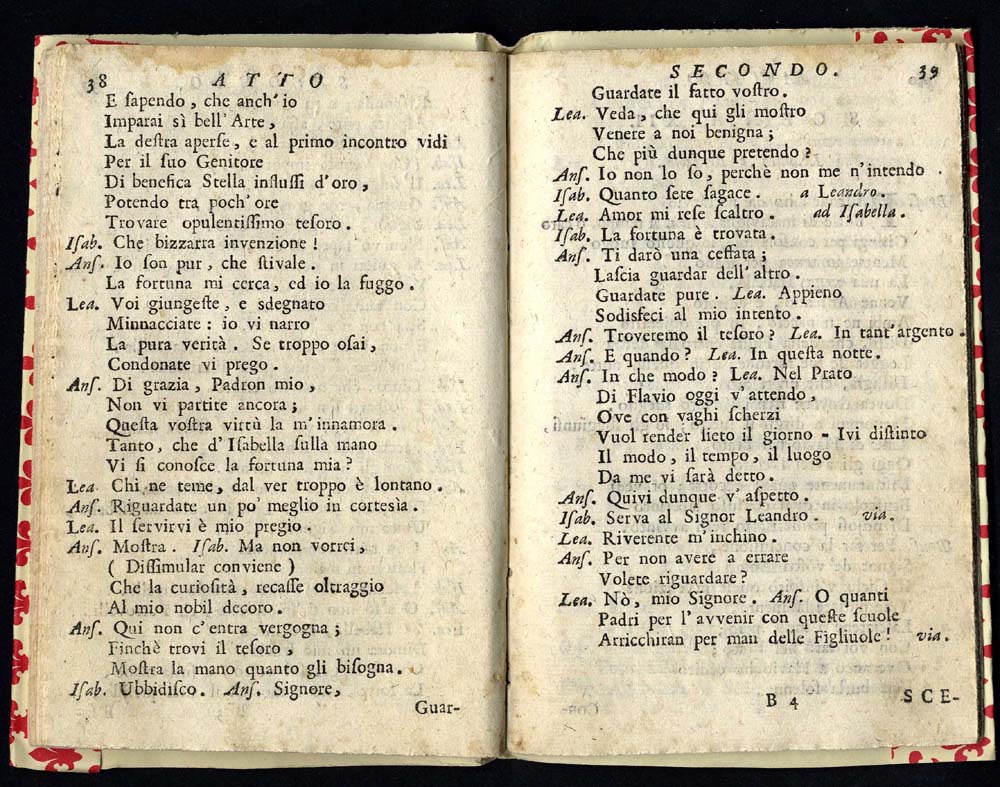 38 ATTO
E sapendo, che anch'io
Imparai sì bell'Arte,
La destra aperse, e al primo incontro vidi
Per il suo Genitore
Di benefica Stella influssi d'oro,
Potendo tra poch'ore
Trovare opulentissimo tesoro.
Isab. Che bizzarra invenzione!
Ans. Io son pur, che stivale.
La fortuna mi cerca, ed io la fuggo.
Lea. Voi giungeste, e sdegnato
Minnacciate: io vi narro
La pura verità. Se troppo osai,
Condonate vi prego.
Ans. Di grazia, Padron mio,
Non vi partite ancora;
Questa vostra virtù la m'innamora.
Tanto, che d'Isabella sulla mano
Vi si conosce la fortuna mia?
Lea. Chi ne teme, dal ver troppo è lontano.
Ans. Riguardate un po' meglio in cortesìa.
Lea. Il servirvi è mio pregio.
Ans. Mostra. Isab. Ma non vorrei,
( Dissimular conviene )
Che la curiosità, recasse oltraggio
Al mio nobil decoro.
Ans. Qui non c'entra vergogna;
Finchè trovi il tesoro,
Mostra la mano quanto gli bisogna.
Isab. Ubbidisco. Ans. Signore,
Guar-
SECONDO. 39
Guardate il fatto vostro.
Lea. Veda, che qui gli mostro
Venere a noi benigna;
Che più dunque pretendo?
Ans. Io non lo so, perchè non me n'intendo.
Isab. Quanto sete sagace. a Leandro.
Lea. Amor mi rese scaltro. ad Isabella.
Isab. La fortuna è trovata.
Ans. Ti darò una ceffata;
Lascia guardar dell'altro.
Guardate pure. Lea. Appieno
Sodisfeci al mio intento.
Ans. Troveremo il tesoro? Lea. In tant'argento.
Ans. E quando? Lea. In questa notte.
Ans. In che modo? Lea. Nel Prato
Di Flavio oggi v'attendo,
Ove con vaghi scherzi
Vuol render lieto il giorno - Ivi distinto
Il modo, il tempo, il luogo
Da me vi sarà detto.
Ans. Quivi dunque v'aspetto.
Isab. Serva al Signor Leandro. via.
Lea. Riverente m'inchino.
Ans. Per non avere a errare
Volete riguardare?
Lea. Nò, mio Signore. Ans. O quanti
Padri per l'avvenir con queste scuole
Arricchiran per man delle Figliuole! via.
B 4 SCE-